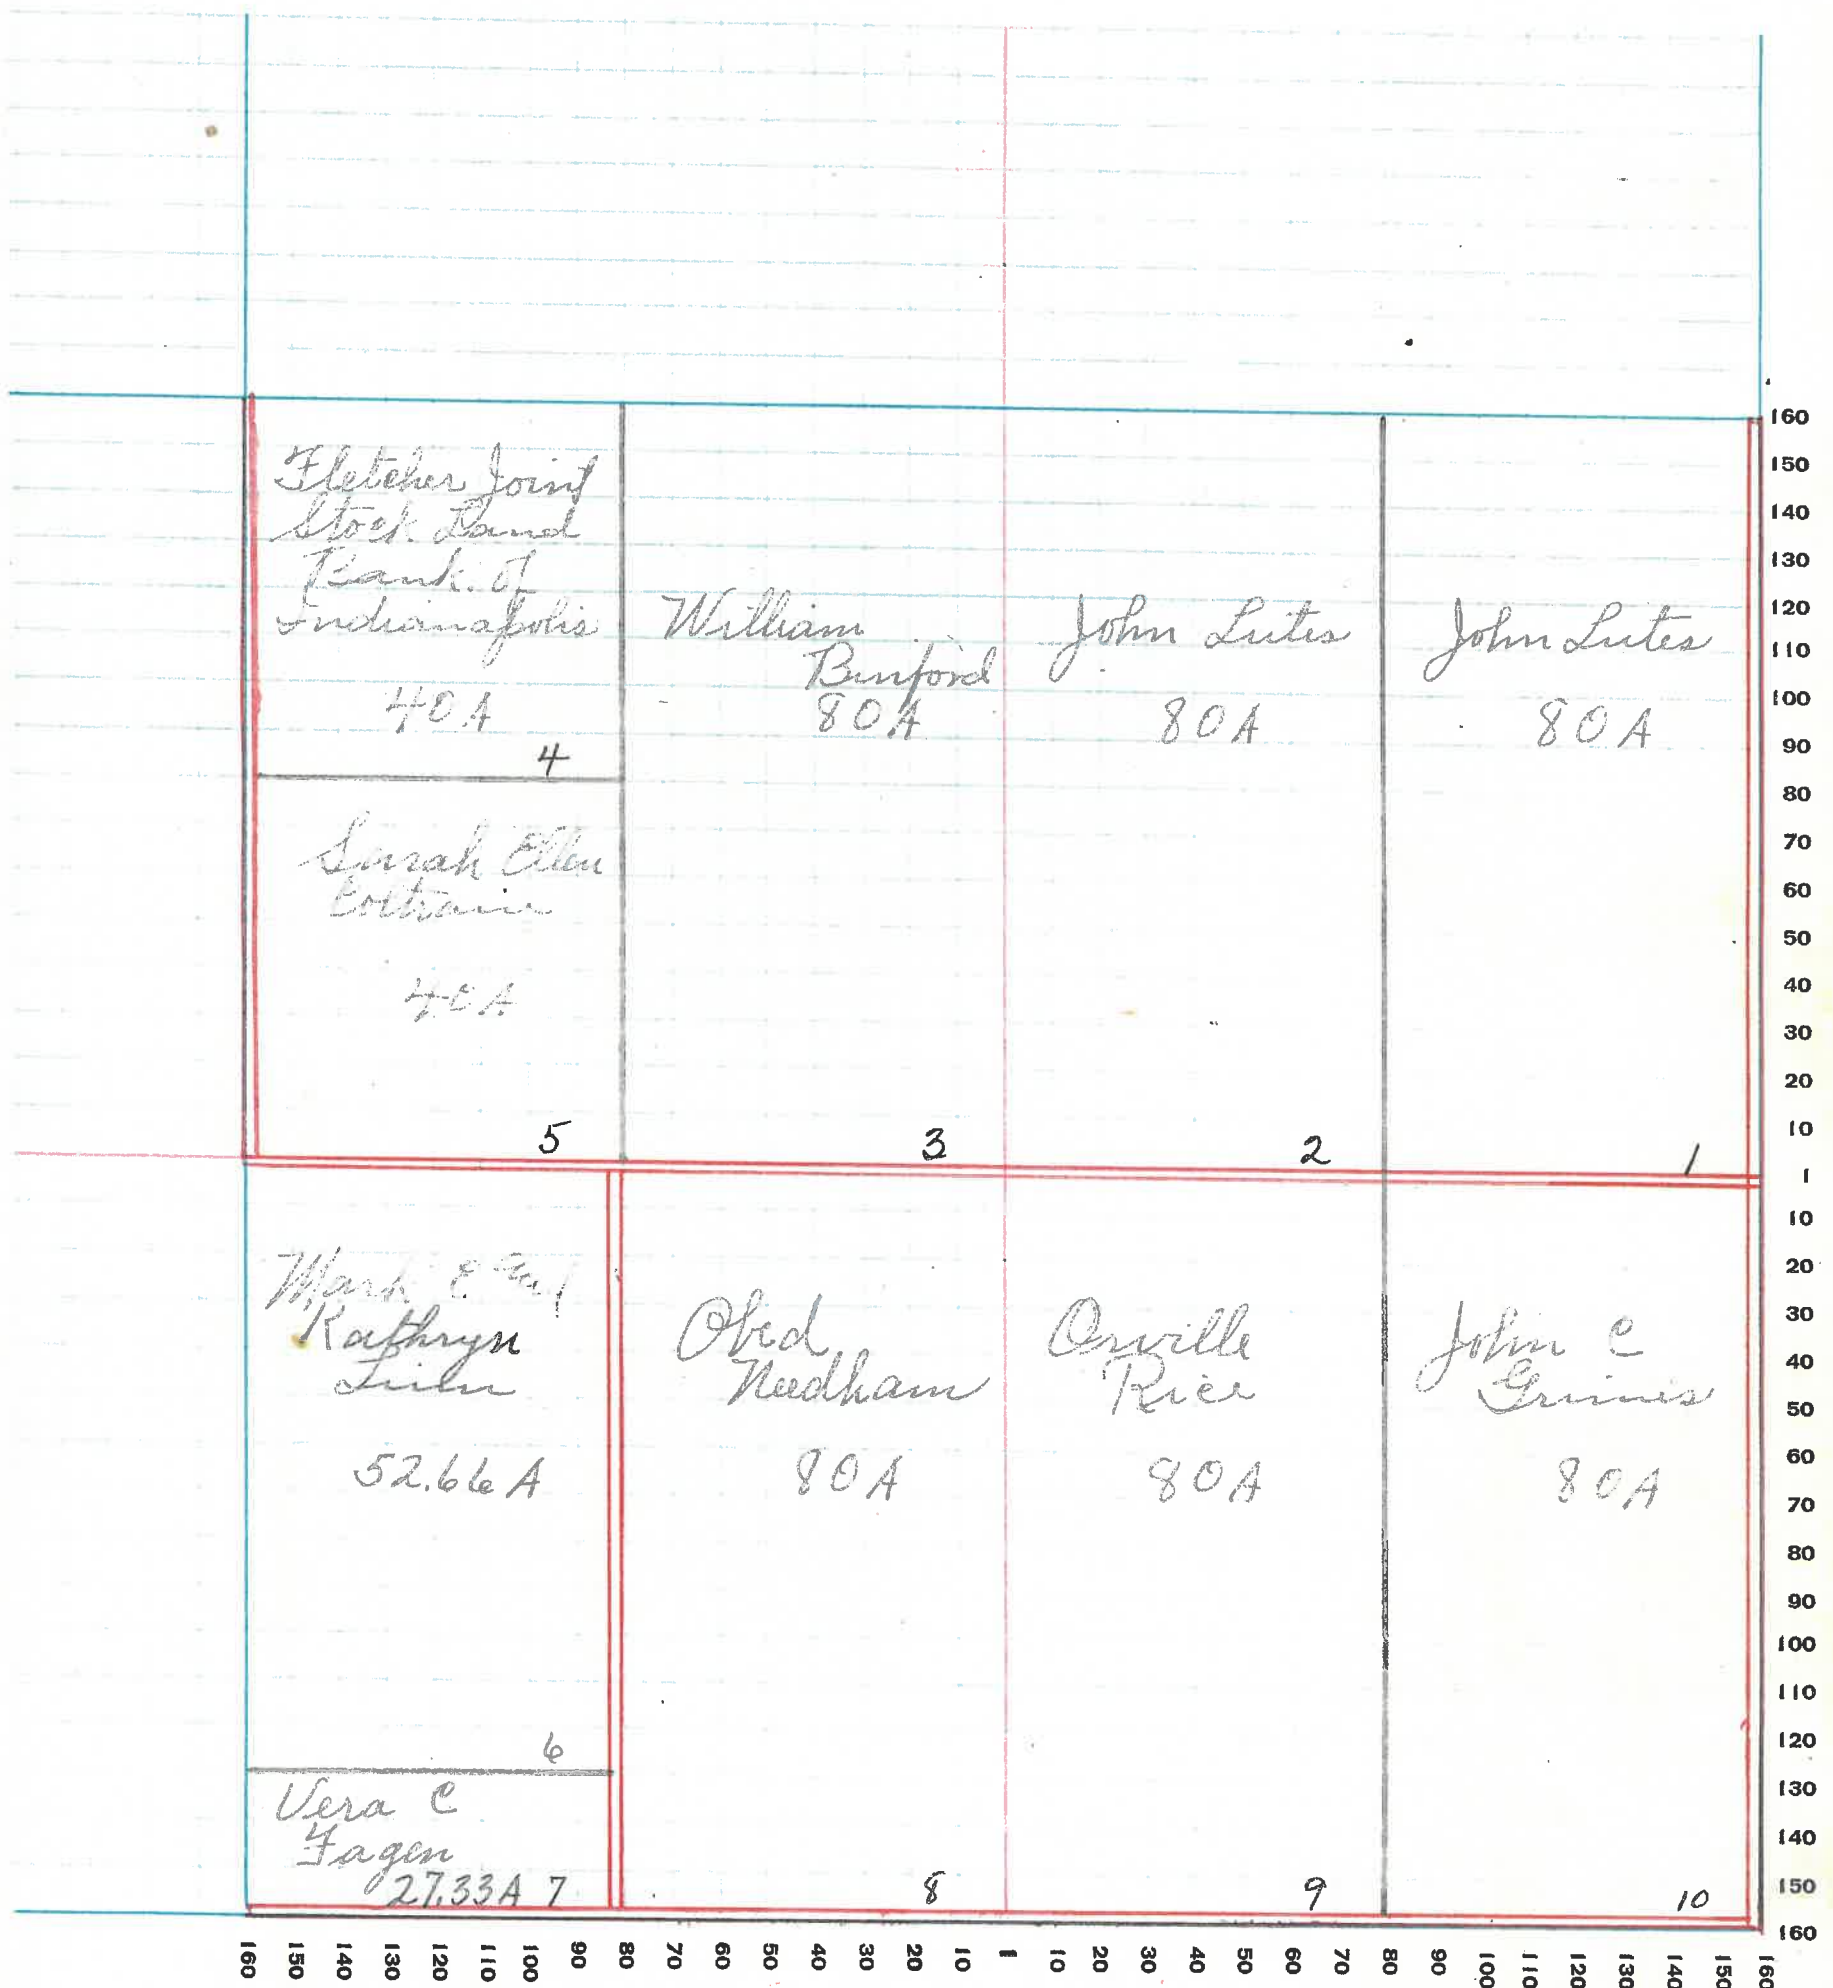 Fletcher Joint
Stock Land
Bank of
Indianapolis
40 A
4
William
Binford
80 A
3
John Lutes
80 A
2
John Lutes
80 A
1
Sarah Ellen
Coltrain
40 A
5
Mark E
Kathryn
52.66 A
6
Vera C
Fagen
27.33 A 7
Obed
Needham
80 A
8
Orville
Rice
80 A
9
John C
Grimes
80 A
10
160
150
140
130
120
110
100
90
80
70
60
50
40
30
20
10
1
10
20
30
40
50
60
70
80
90
100
110
120
130
140
150
160
160 150 140 130 120 110 100 90 80 70 60 50 40 30 20 10 1 10 20 30 40 50 60 70 80 90 100 110 120 130 140 150 160